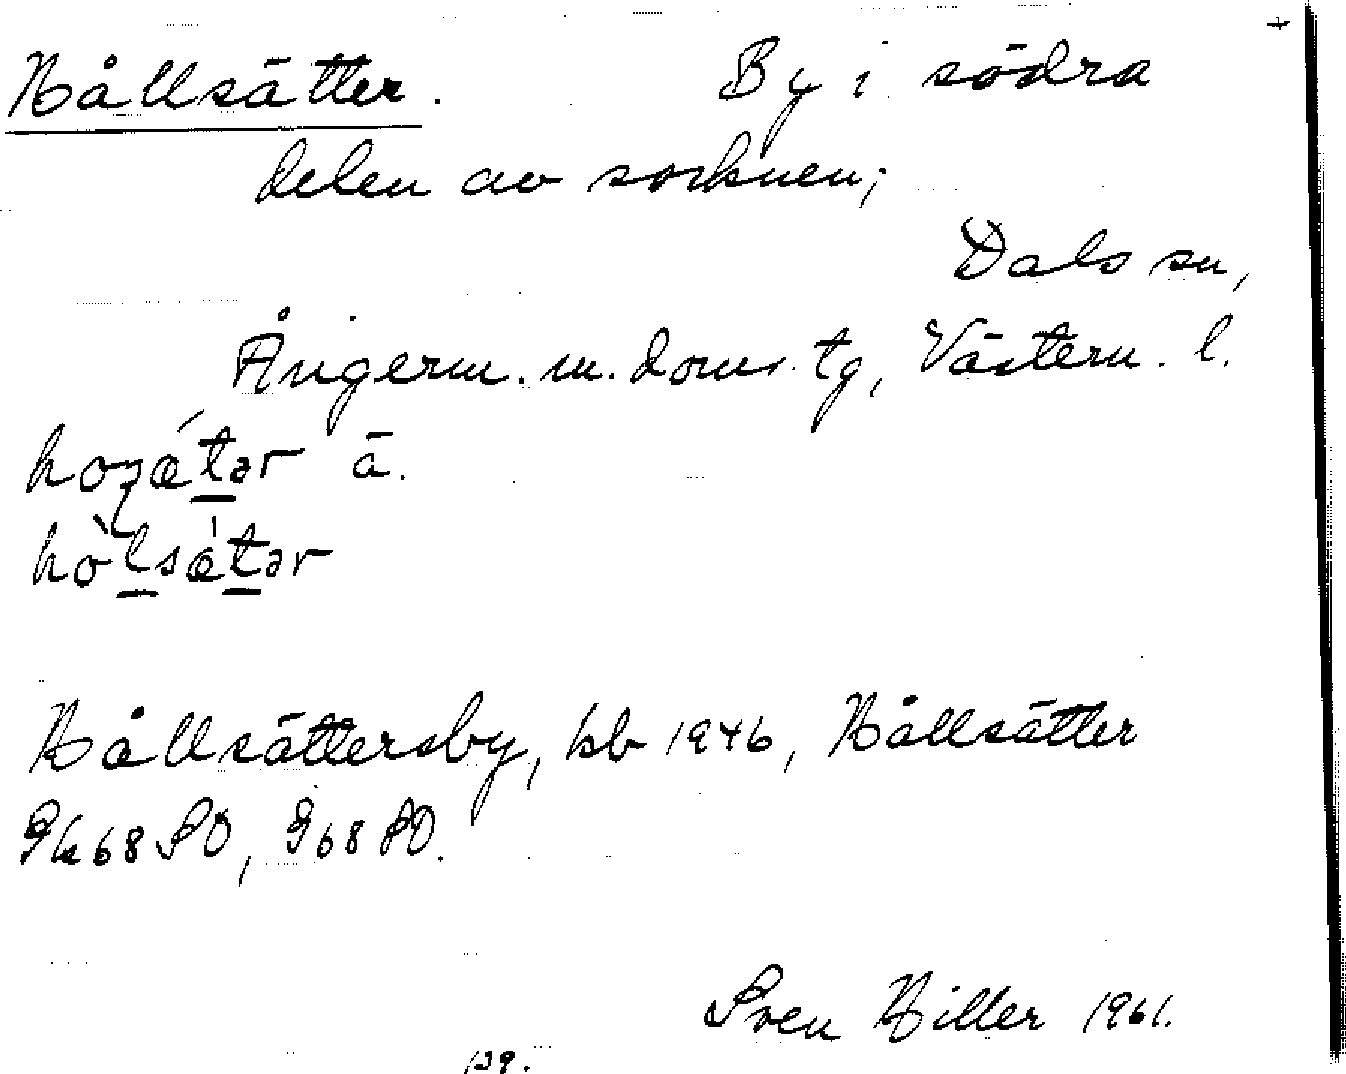 +
Hållsätter. By i södra
delen av socknen;
Dals sn,
Ångerm. m. doms. tg, Västern. l.
ä.
Hållsättersby, kb 1946, Hållsätter
Gk 68 SO, G 68 SO.
Sven Hiller 1961.
139.